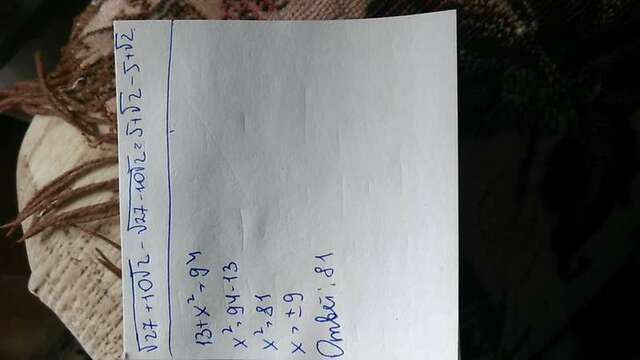 √27+10√2 - √27-10√2 = 5+√2 - 5+√2
13+x² = 94
x² = 94-13
x² = 81
x = ±9
Ответ: 81